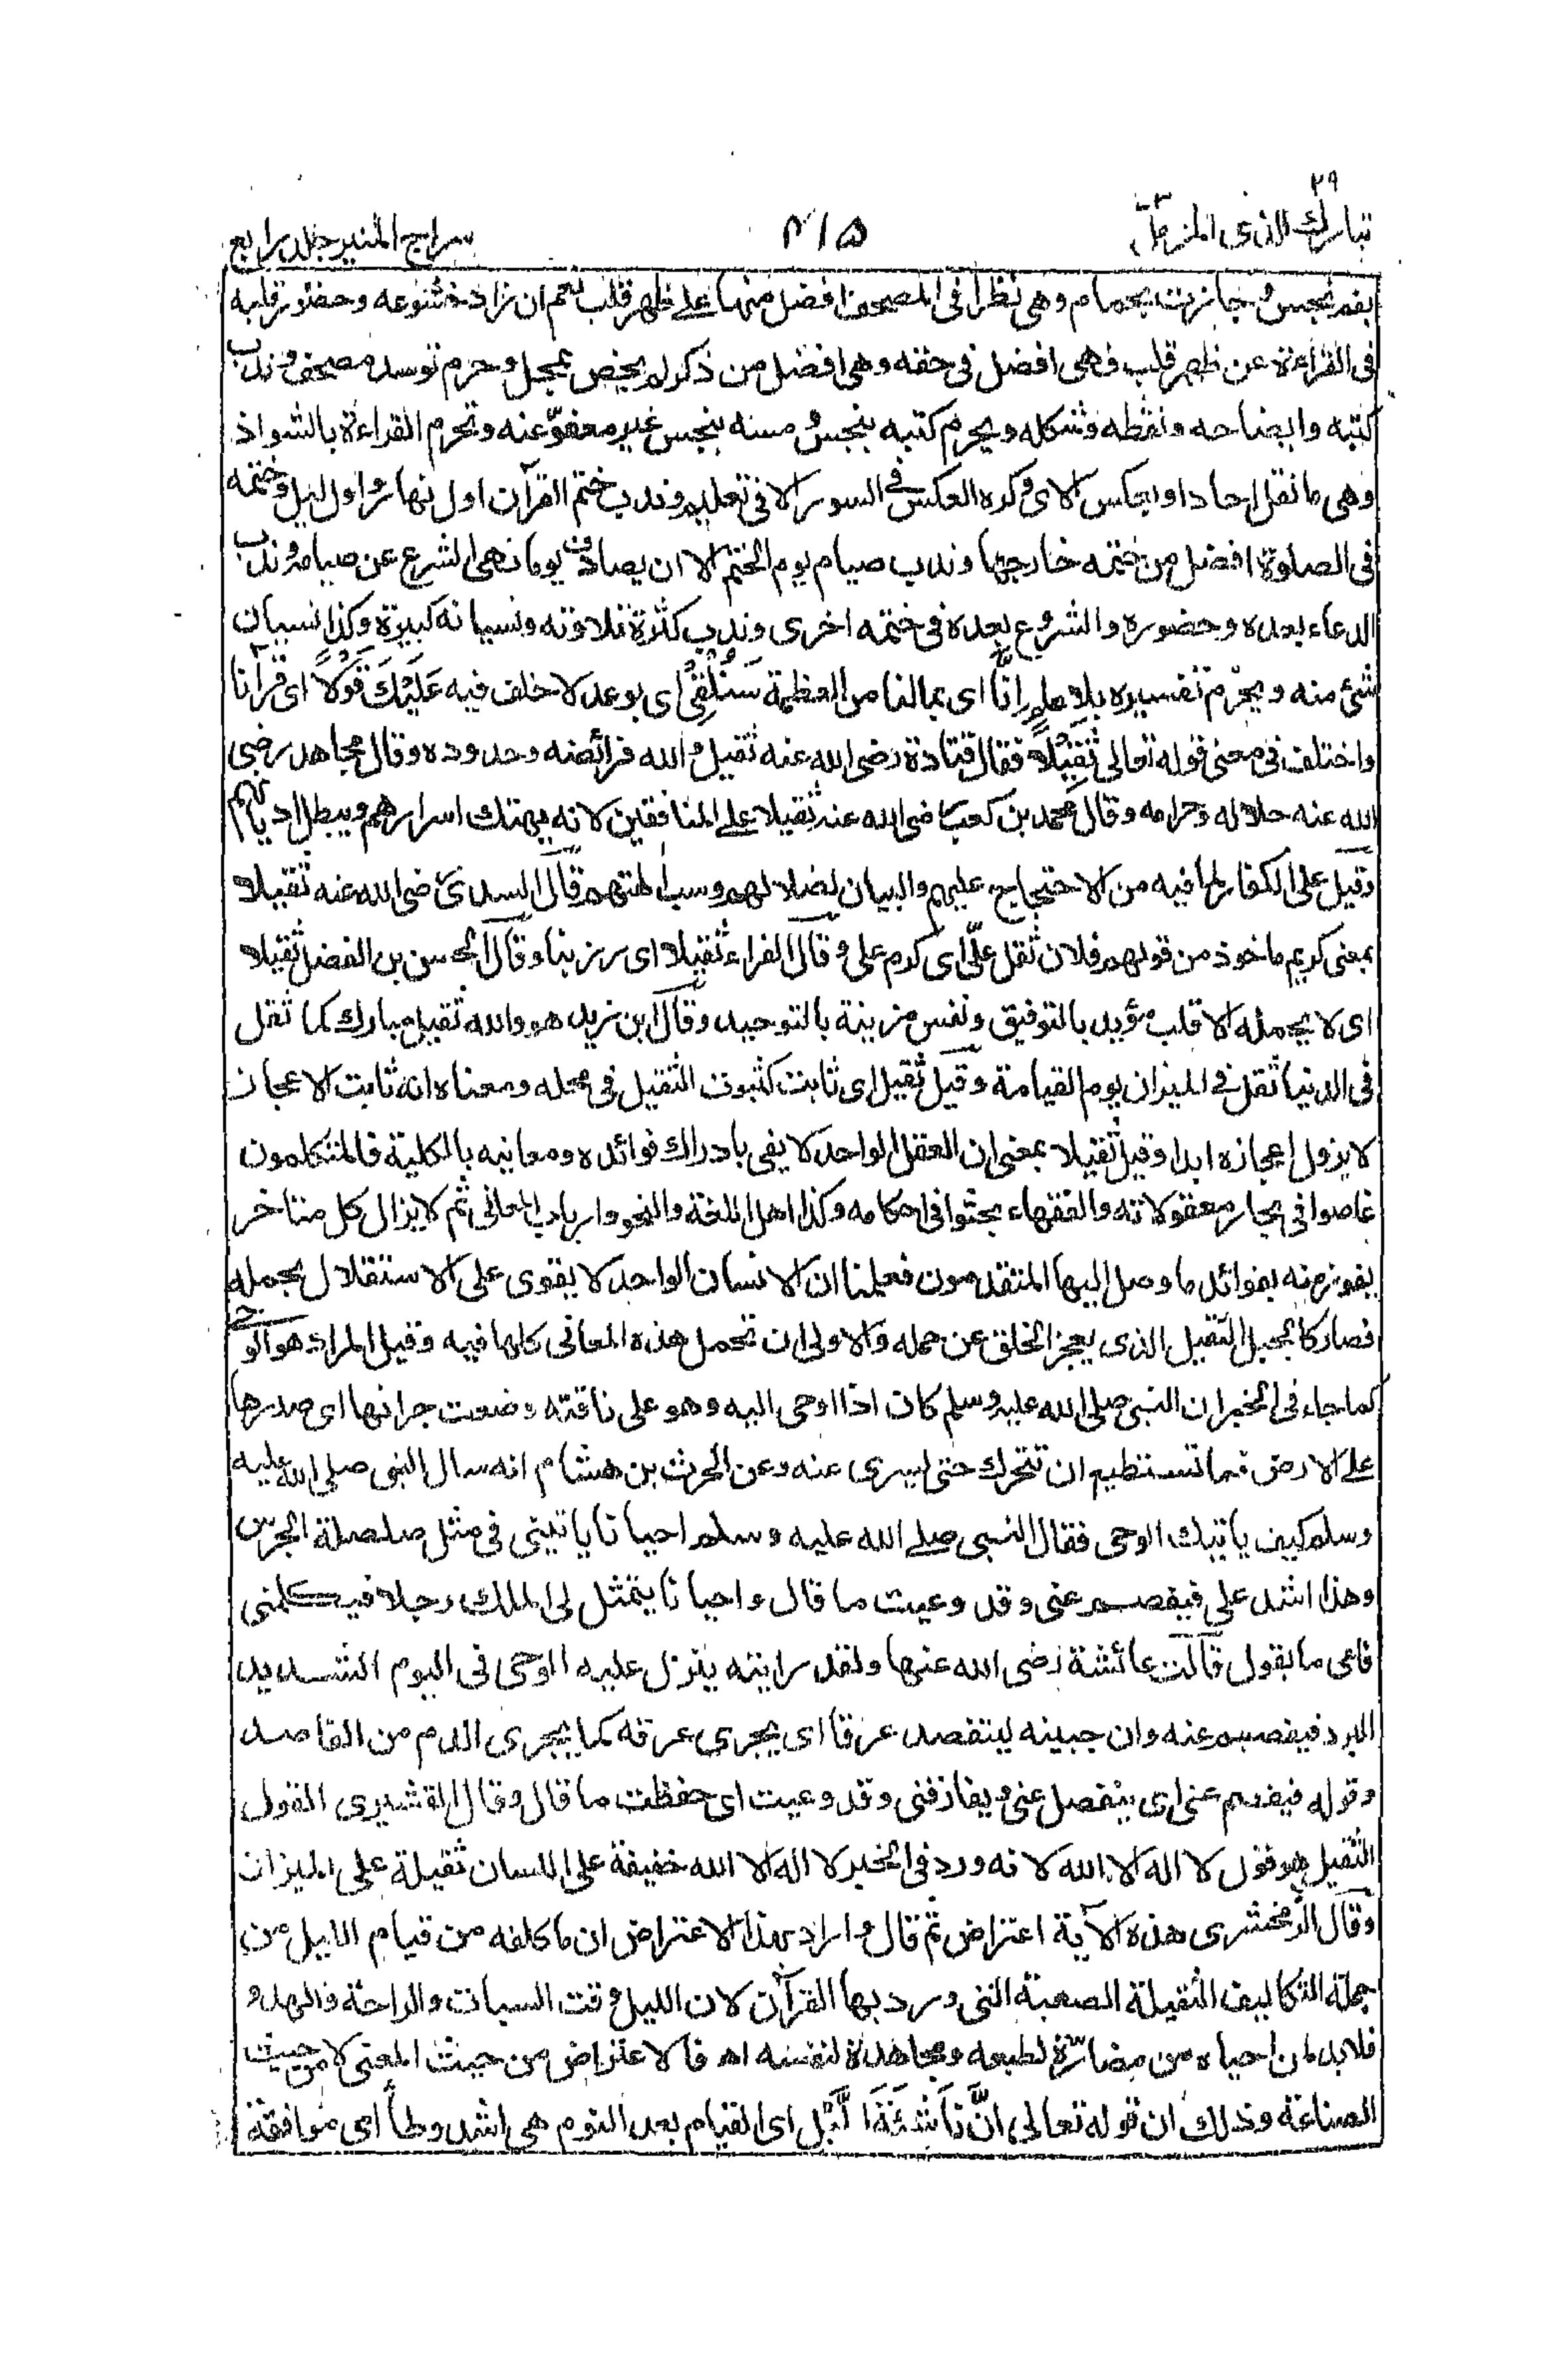 ٢٩
تبارك الذى المزمل
٤١٥
سراج المنير جلد رابع
بفم نجس وجازت بحمام وهى نظرا فى المصحف افضل منها على ظهر قلب نعم ان زاد خشوعه وحضور قلبه
فى القراءة عن ظهر قلب فهى افضل فى حقه وهى افضل من ذكر لم يخص بمحل وحرم توسد مصحف وندب
كتبه وايضاحه ونقطه وشكله ويحرم كتبه بنجس ومسه بنجس غير معفوّ عنه وتحرم القراءة بالشواذ
وهى ما نقل احادا وبعكس الاى وكره العكس فى السور الا فى تعليم وندب ختم القرآن اول نهار واول ليل وختمه
فى الصلوة افضل من ختمه خارجها وندب صيام يوم الختم الا ان يصادف يوما نهى الشرع عن صيامه وندب
الدعاء بعده وحضوره والشروع بعده فى ختمه اخرى وندب كثرة تلاوته ونسيانه كبيرة وكذا نسيان
شئ منه ويحرم تفسيره بلا علم اِنَّا اى بمالنا من العظمة سَنُلْقِىْ اى بوعد لا خلف فيه عَلَيْكَ قَوْلًا اى قرآنا
واختلف فى معنى قوله تعالى ثَقِيْلًا فقال قتادة رضى الله عنه ثقيل والله فرائضه وحدوده وقال مجاهد رضى
الله عنه حلاله وحرامه وقال محمد بن كعب رضى الله عنه ثقيلا على المنافقين لانه يهتك اسرارهم ويبطل اديانهم
وقيل على الكفار لما فيه من الاحتجاج عليهم والبيان لضلالهم وسب الهتهم قال السدى رضى الله عنه ثقيلا
بمعنى كريم ماخوذ من قولهم فلان ثقل علّى اى كرم على وقال الفراء ثقيلا اى رزينا وقال الحسن بن الفضل ثقيلا
اى لا يحمله الا قلب مؤيد بالتوفيق ونفس مزينة بالتوحيد وقال ابن زيد هو والله ثقيل مبارك كما ثقل
فى الدنيا ثقل فى الميزان يوم القيامة وقيل ثقيل اى ثابت كثبوت الثقيل فى محله ومعناه انه ثابت الاعجاز
لا يزول اعجازه ابدا وقيل ثقيلا بمعنى ان العقل الواحد لا يفى بادراك فوائده ومعانيه بالكلية فالمتكلمون
غاصوا فى بحار معقولاته والفقهاء بحثوا فى احكامه وكذا اهل اللغة والنحو وارباب المعانى ثم لا يزال كل متاخر
يفوز منه بفوائد ما وصل اليها المتقدمون فعلمنا ان الانسان الواحد لا يقوى على الاستقلال بحمله
فصار كالجبل الثقيل الذى يعجز الخلق عن حمله والاولى ان تحمل هذه المعانى كلها فيه وقيل المراد هو الوحى
كما جاء فى الخبر ان النبى صلى الله عليه وسلم كان اذا اوحى اليه وهو على ناقته وضعت جرانها اى صدرها
على الارض فما تستطيع ان تتحرك حتى ليسرى عنه وعن الحرث بن هشام انه سال النبى صلى الله عليه
وسلم كيف ياتيك الوحى فقال النبى صلى الله عليه وسلم احيانا ياتينى فى مثل صلصلة الجرس
وهذا اشد على فيفصم عنى وقد وعيت ما قال واحيانا يتمثل لى الملك رجلا فيكلمنى
فاعى ما يقول قالت عائشة رضى الله عنها ولقد رايته ينزل عليه الوحى فى اليوم الشديد
البرد فيفصم عنه وان جبينه ليتفصد عرقا اى يجرى عرقه كما يجرى الدم من الفاصد
وقوله فيفصم عنى اى ينفصل عنى ويفارقنى وقد وعيت اى حفظت ما قال وقال القشيرى القول
الثقيل هو قول لا اله الا الله لانه ورد فى الخبر لا اله الا الله خفيفة على اللسان ثقيلة على الميزان
وقال الزمخشرى هذه الآية اعتراض ثم قال واراد بهذا الاعتراض ان ما كلفه من قيام الليل من
جملة التكاليف الثقيلة الصعبة التى ورد بها القرآن لان الليل وقت السبات والراحة والهدو
فلابد لمن احياه من مضادّة لطبعه ومجاهدة لنفسه اه فالاعتراض من حيث المعنى لا من حيث
الصناعة وذلك ان قوله تعالى اِنَّ نَاشِئَةَ الَّيْلِ اى القيام بعد النوم هى اشد وطأ اى موافقة